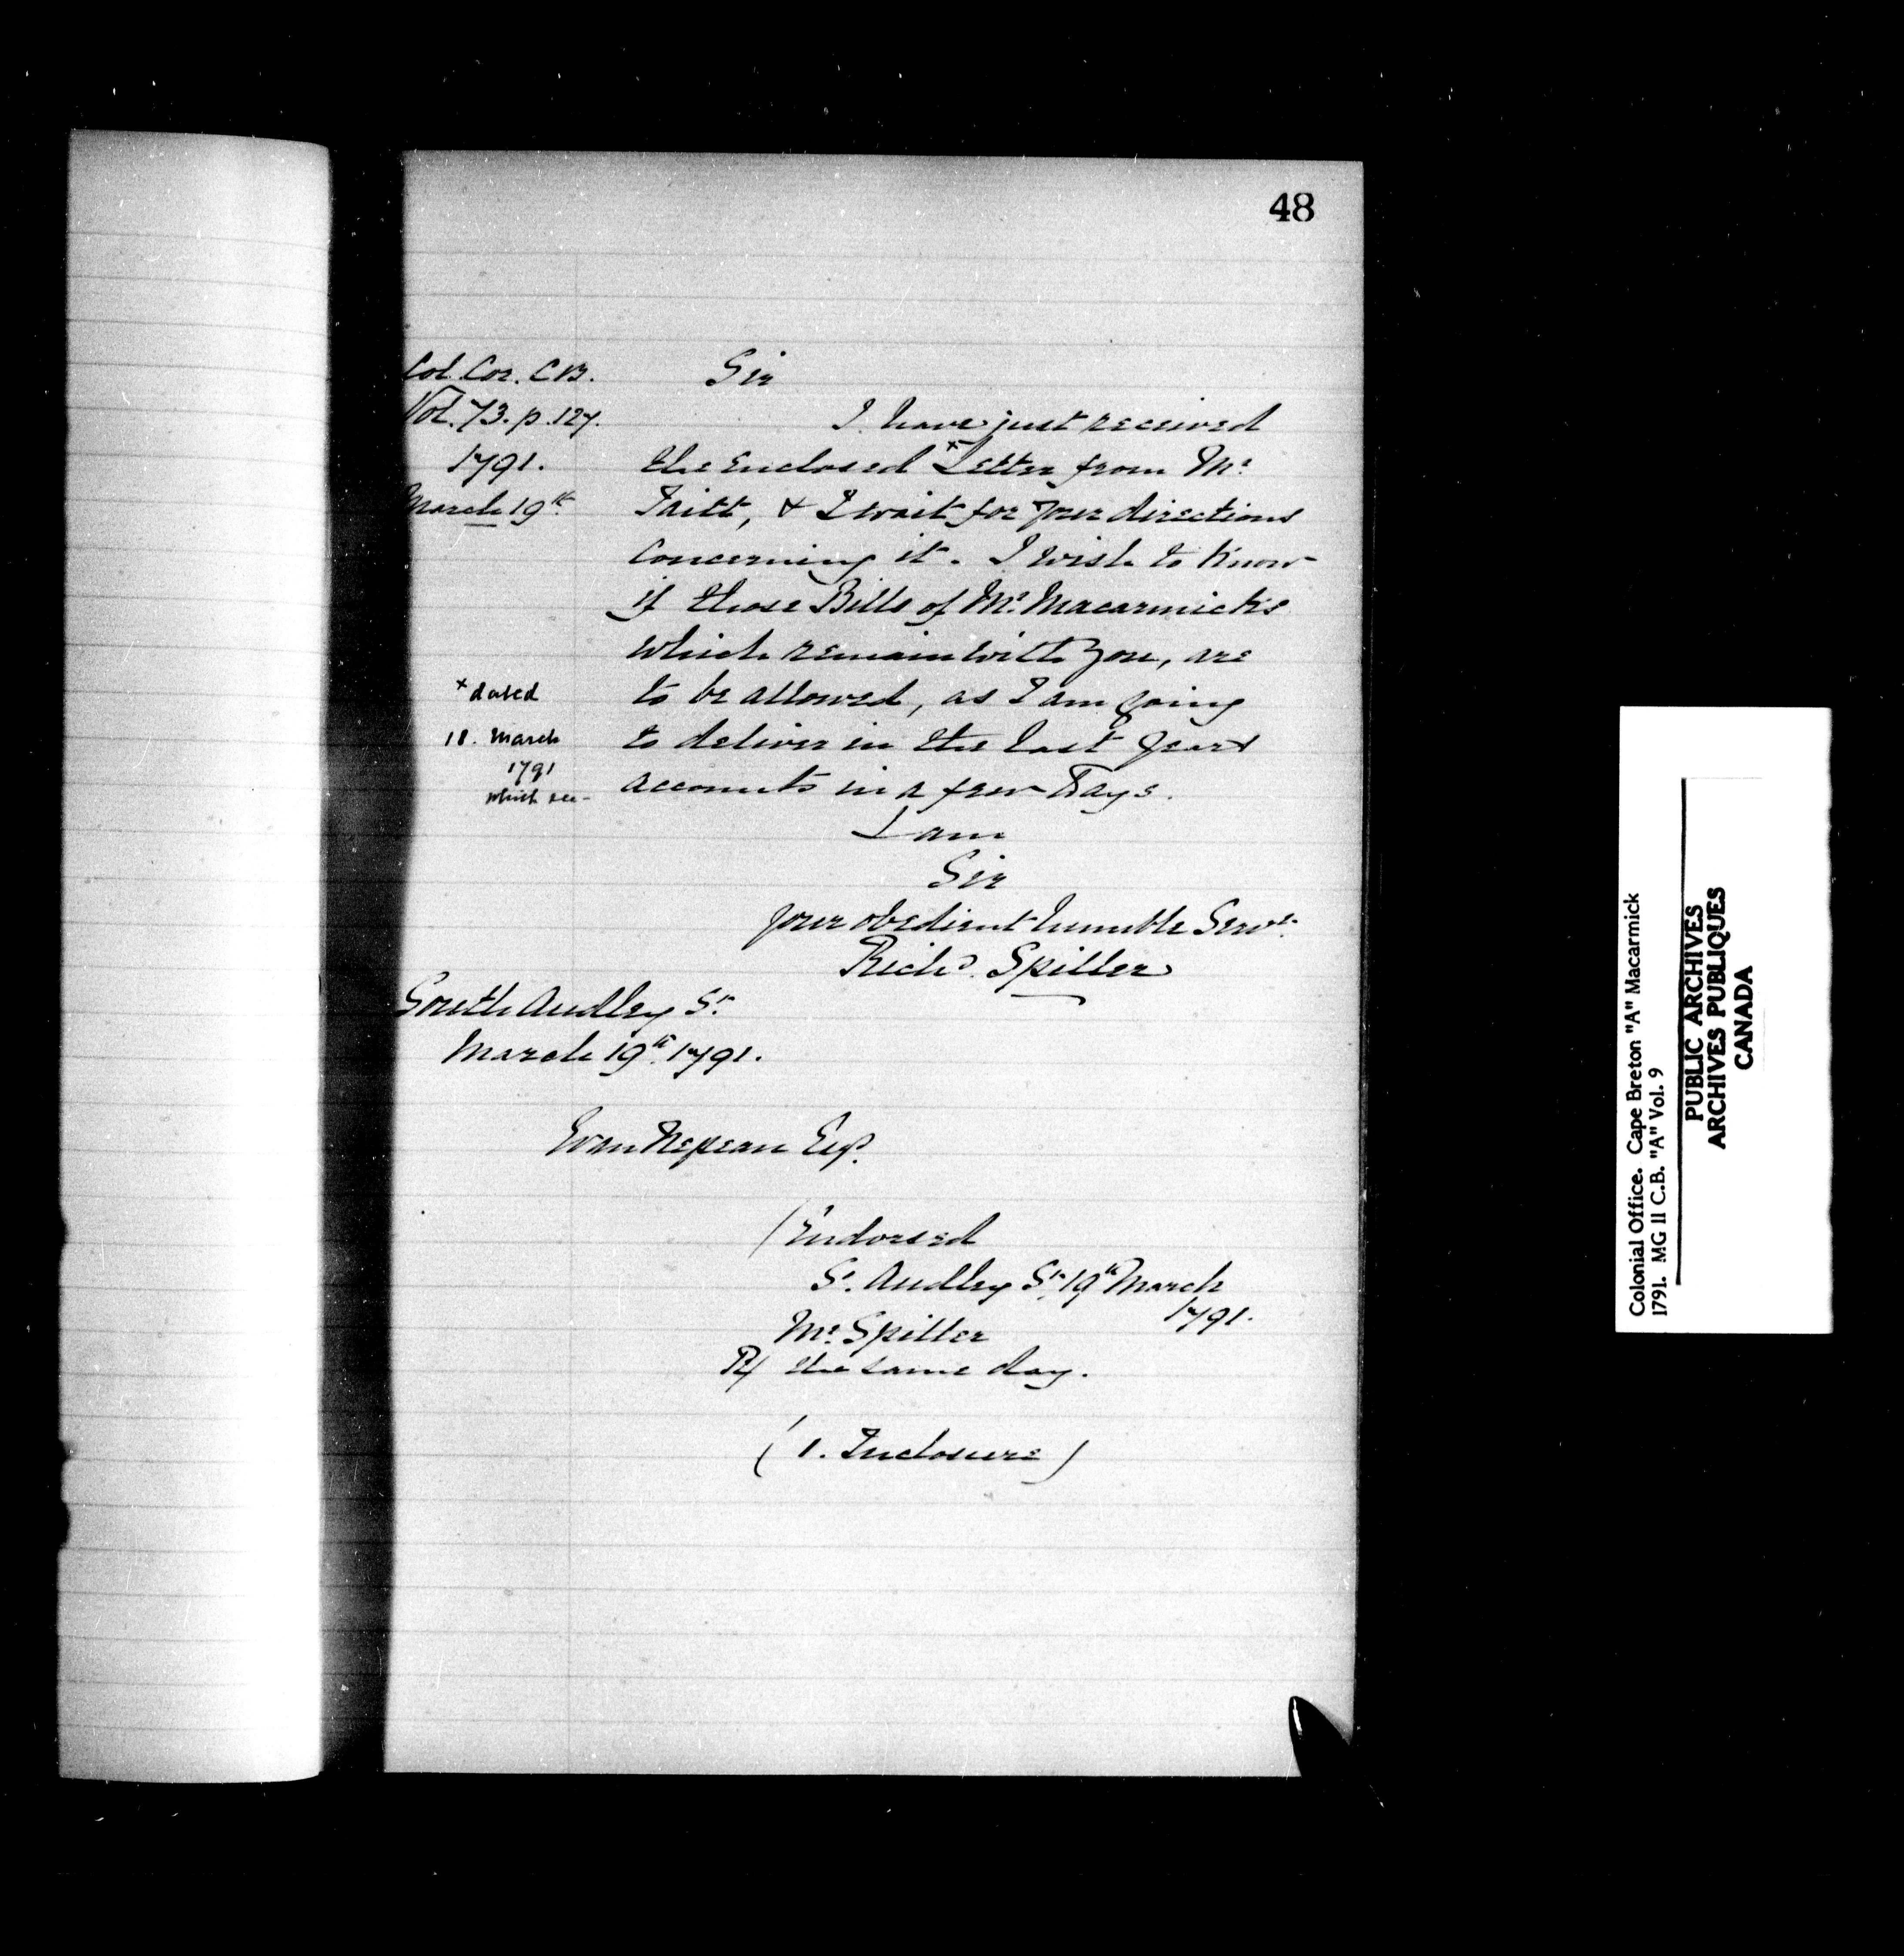 48
Col. Cor. C.B.
Vol. 73. p. 127.
1791.
March 19th.
Sir
I have just received
the enclosed + Letter from Mr
Taitt, & I wait for your directions
concerning it. I wish to know
if those Bills of Mr. Macarmicks
which remain with you, are
to be allowed, as I am going
to deliver in the last years
accounts in a few Days.
+ dated
18. March
1791
which see-
I am
Sir
your obedient humble Servt.
Richd. Spiller
South Audley St.
March 19th 1791.
Evan Nepean Esqr.
(Endorsed
So. Audley St. 19th March
1791.
Mr. Spiller
R/ the same day.
(1. Inclosure)
Colonial Office. Cape Breton "A" Macarmick
1791. MG 11 C.B. "A" Vol. 9
PUBLIC ARCHIVES
ARCHIVES PUBLIQUES
CANADA